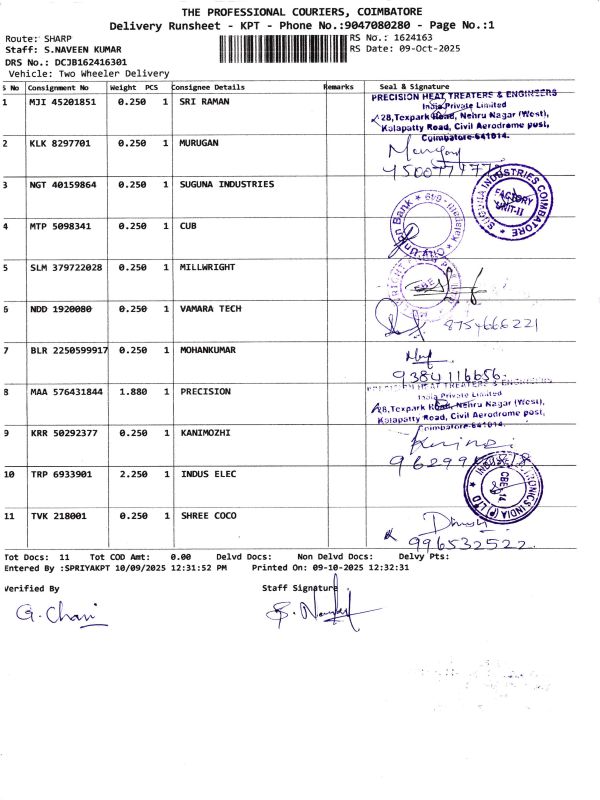 THE PROFESSIONAL COURIERS, COIMBATORE
Delivery Runsheet - KPT - Phone No.:9047080280 - Page No.:1
Route: SHARP
RS No.: 1624163
Staff: S.NAVEEN KUMAR
RS Date: 09-Oct-2025
DRS No.: DCJB162416301
Vehicle: Two Wheeler Delivery
S No Consignment No Weight PCS Consignee Details Remarks Seal & Signature
1 MJI 45201851 0.250 1 SRI RAMAN
PRECISION HEAT TREATERS & ENGINEERS
India Private Limited
28,Texpark Road, Nehru Nagar (West),
Kalapatty Road, Civil Aerodrome post,
Coimbatore-641014.
2 KLK 8297701 0.250 1 MURUGAN
3 NGT 40159864 0.250 1 SUGUNA INDUSTRIES
SUGUNA INDUSTRIES COIMBATORE
FACTORY
UNIT-II
4 MTP 5098341 0.250 1 CUB
5 SLM 379722028 0.250 1 MILLWRIGHT
6 NDD 1920080 0.250 1 VAMARA TECH
8754666221
7 BLR 2250599917 0.250 1 MOHANKUMAR
9384116656.
8 MAA 576431844 1.880 1 PRECISION
PRECISION HEAT TREATERS & ENGINEERS
India Private Limited
28,Texpark Road, Nehru Nagar (West),
Kalapatty Road, Civil Aerodrome post,
Coimbatore-641014.
9 KRR 50292377 0.250 1 KANIMOZHI
10 TRP 6933901 2.250 1 INDUS ELEC
CBE-14
11 TVK 218001 0.250 1 SHREE COCO
996532522.
Tot Docs: 11 Tot COD Amt: 0.00 Delvd Docs: Non Delvd Docs: Delvy Pts:
Entered By :SPRIYAKPT 10/09/2025 12:31:52 PM Printed On: 09-10-2025 12:32:31
Verified By
Staff Signature
G. Chari